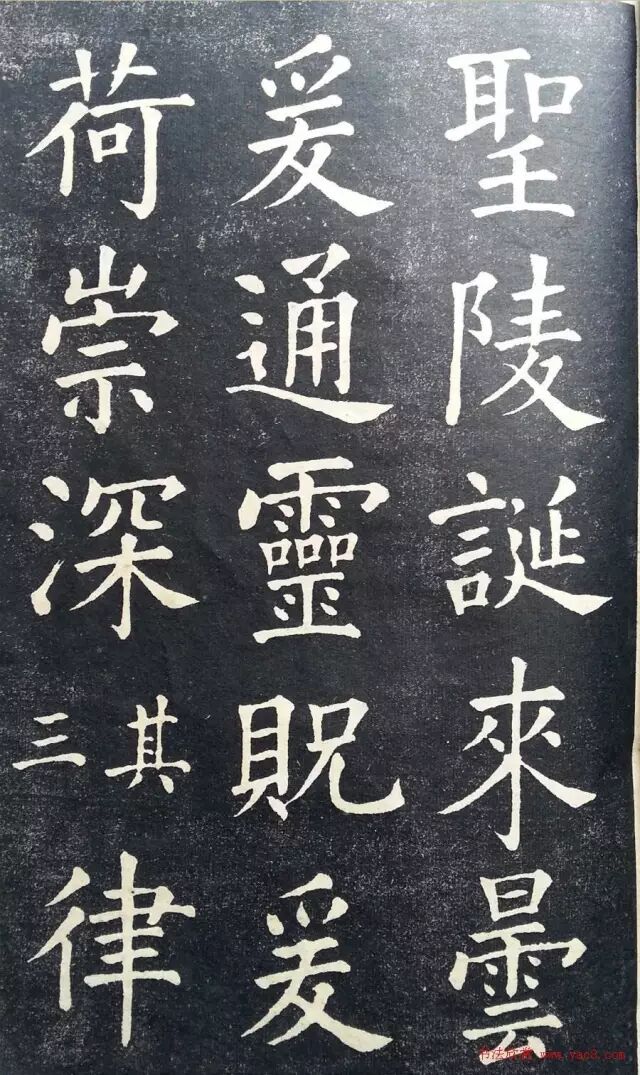 聖陵誕來曇
爰通靈貺爰
荷崇深其三律
书法欣赏 www.yac8.com